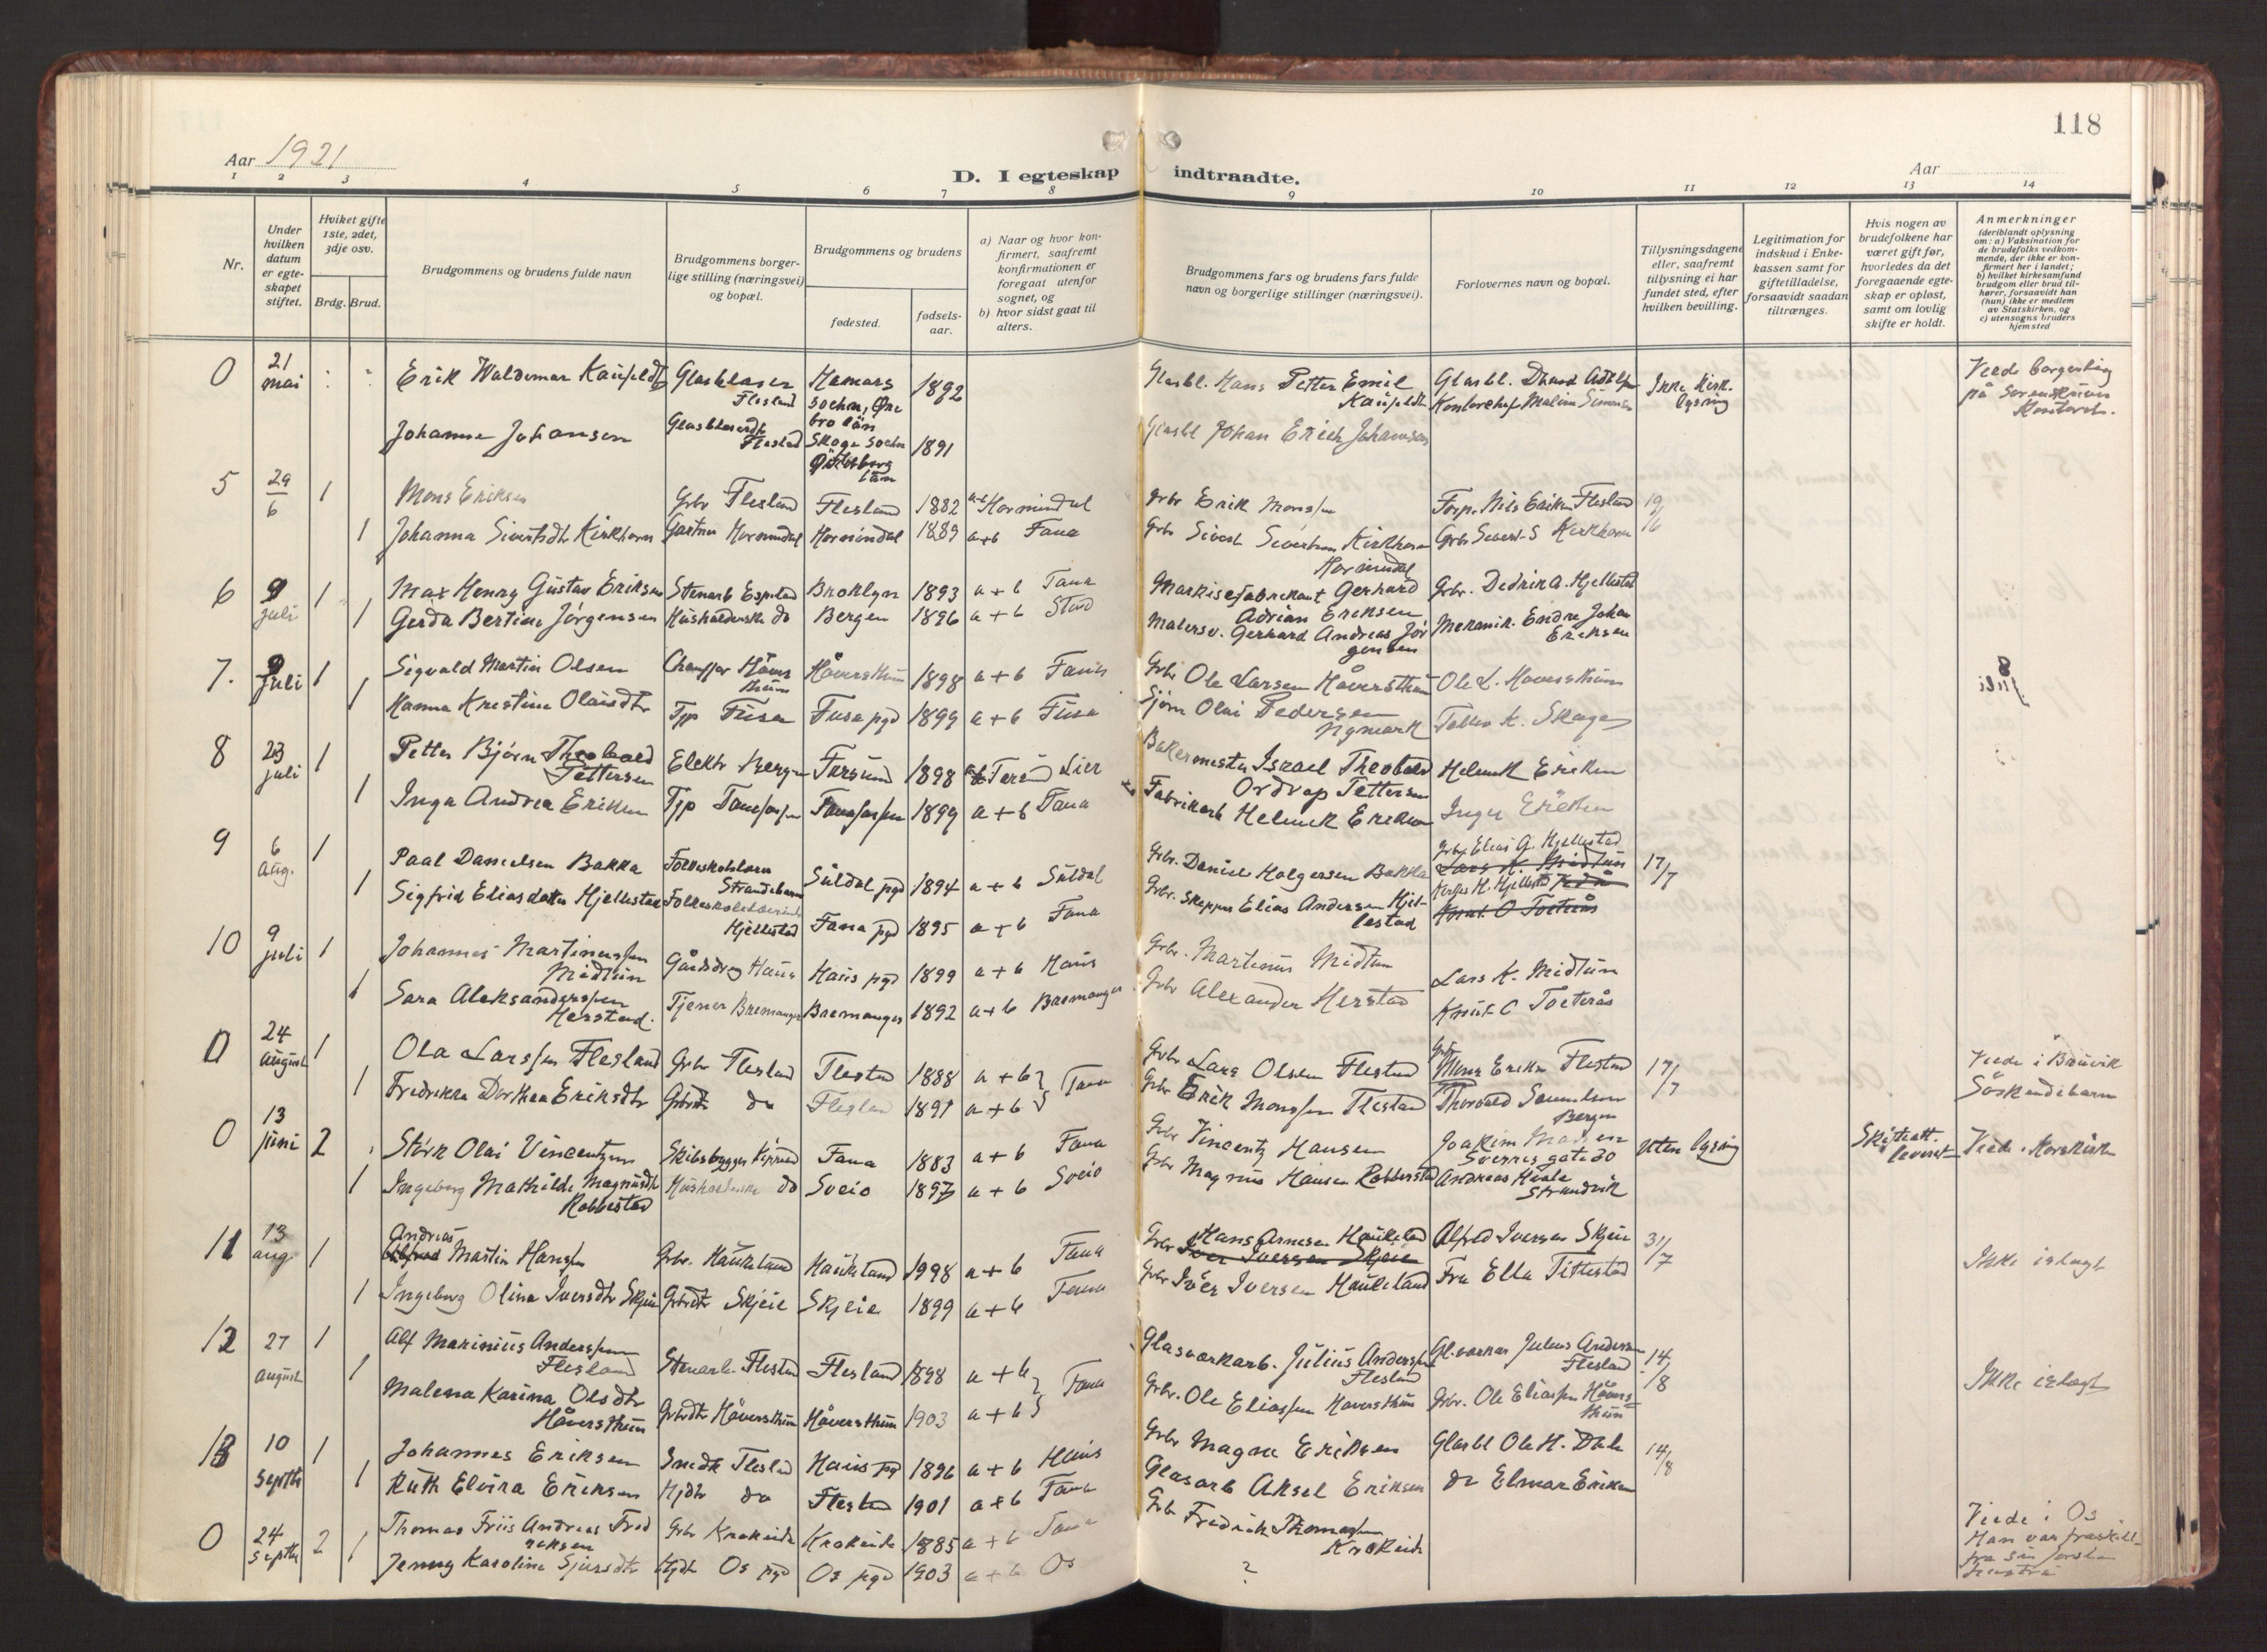 118
Aar 1921
Aar
D. I egteskap indtraadte.
1 2 3 4 5 6 7 8 9 10 11 12 13 14
Nr.
Under hvilken datum er egteskapet stiftet.
Hviket gifte 1ste, 2det, 3dje osv.
Brdg. Brud.
Brudgommens og brudens fulde navn
Brudgommens borgerlige stilling (næringsvei) og bopæl.
Brudgommens og brudens
fødested.
fødselsaar.
a) Naar og hvor konfirmert, saafremt konfirmationen er foregaat utenfor sognet, og
b) hvor sidst gaat til alters.
Brudgommens fars og brudens fars fulde navn og borgerlige stillinger (næringsvei).
Forlovernes navn og bopæl.
Tillysningsdagene eller, saafremt tillysning ei har fundet sted, efter hvilken bevilling.
Legitimation for indskud i Enkekassen samt for giftetilladelse, forsaavidt saadan tiltrænges.
Hvis nogen av brudefolkene har været gift før, hvorledes da det foregaaende egteskap er opløst, samt om lovlig skifte er holdt.
Anmerkninger
(deriblandt oplysning om: a) Vaksination for de brudefolks vedkommende, der ikke er konfirmert her i landet; b) hvilket kirkesamfund brudgom eller brud tilhører, forsaavidt han (hun) ikke er medlem av Statskirken, og c) utensogns bruders hjemsted
0 21 mai Erik Waldemar Glasblaser Flesland Hamars sochn, Øre bro län 1892 Glasbl. Hans Petter Emil Glasbl. Ikke kirk. lysning Viede borgerlig på Sorenskriver
Johanne Johansen Flesland Skoga sochn län 1891 Glasbl Johan Erich Johansson
5 29/6 1 Mons Eriksen Grbr Flesland Flesland 1882 a+b Hornindal Grbr Erik Monssen Forp. Nils Eriksen Flesland 19/6
1 Johanna Sivertsdtr Kirkhorn Hornindal Hornindal 1889 a+b Fana Grbr Sivert Sivertsen Kirkhorn Hornindal Grbr Sivert S Kirkhorn
6 9 juli 1 Max Henry Gustav Eriksen Stenarb Espeland Broklyn 1893 a+b Fana Markisefabrikant Gerhard Adrian Eriksen Grbr. Didrik A. Hjellestad
1 Gerda Bertine Jørgensen Husholderske do Bergen 1896 a+b Malersv. Gerhard Andreas Jørgensen Mekanik. Endre Johan Eriksen
7. 9 juli 1 Sigvald Martin Olsen Chauffør Håversthun Håversthun 1898 a+b Grbr Ole Larsen Håversthun Ole L. Haversthun 8 juli
1 Hanna Kristine Olaisdtr Tjp Fusa Fusa pgd 1899 a+b Fusa Sjøm Olai Pedersen Nymark
8 23 juli 1 Petter Bjørn Theobald Pettersen Elektr Bergen Farsund 1898 Lier Bakermester Israel Theobald Ordrop Pettersen Helmik Eriksen
1 Inga Andrea Eriksen Tjp 1899 a+b Fana Fabrikarb Helmik Eriksen Inger Eriksen
9 6 Aug. 1 Paal Danielsen Bakka Folkeskolelærer Strandebarm Suldal pgd 1894 a+b Suldal Grbr. Daniel Holgersen Bakka Grbr Elias A. Hjellestad Lars K. Midtun 17/7
1 Sigfrid Eliasdatter Hjellestad Folkeskolelærerinde Hjellestad Fana pgd 1895 a+b Fana Grbr. Skipper Elias Andersen Hjellestad H. Hjellestad Knut O Toeterås
10 9 juli 1 Johannes Martinussen Midtun Gårdsdreng Haus Haus pgd 1899 a+b Haus Grbr. Martinus Midtun Lars K. Midtun
1 Sara Aleksanderssen Herstad Tjener Bremanger Bremanger 1892 a+b Bremanger Grbr Alexander Herstad Knut O Toeterås
0 24 august 1 Ola Larssen Flesland Grbr Flesland Flesland 1888 a+b Fana Grbr Lars Olsen Flesland Grbr Mons Eriksen Flesland 17/7 Viede i Bruvik
1 Fredrikka Dorthea Eriksdtr Grbrdtr do Flesland 1891 a+b Grbr Erik Monssen Flesland Thorvald Samuelsen Bergen Søskendebarn
0 13 juni 2 Størk Olai Vincentzen Skibsbygger Fana 1883 a+b Fana Grbr Vincentz Hansen Joakim Madsen Sverresgate do Uten lysning Skifteatt. leveret Viede i Korskirken
1 Ingeborg Mathilde Magnusdtr Robbestad Husholderske do Sveio 1897 a+b Sveio Grbr Magnus Hansen Robberstad Andreas Strandvik
11 13 aug 1 Andreas Alfred Martin Hanssen Grbr. Haukeland Haukeland 1998 a+b Fana Grbr Hans Arnesen Haukeland Iver Iversen Skjeie Alfred Iversen Skjeie 31/7 Ikke islagt
1 Ingeborg Olina Iversdtr Skjeie Grbrdtr Skjeie Skjeie 1899 a+b Fana Grbr Iver Iversen Haukeland Fru Ella Tittestad
12 27 august 1 Alf Marinius Anderssen Flesland Stenarb. Flesland Flesland 1898 a+b Fana Glasværkarb. Julius Anderssen Flesland Gl.værkar Julius Andersen Flesland 14/8 Ikke islagt
1 Malena Karina Olsdtr Håversthun Grbrdtr Håversthun Håversthun 1903 a+b Grbr. Ole Eliassen Haversthun Grbr. Ole Eliassen Håversthun
13 10 septbr 1 Johannes Eriksen Snedk Flesland Haus pgd 1896 a+b Haus Grbr Magne Eriksen Glasbl Ole H. Dale 14/8
1 Ruth Elvira Eriksen Hjdtr do Flesland 1901 a+b Fana Glasarb Aksel Eriksen do Elmar Eriksen
0 24 septbr 2 Thomas Friis Andreas Fredriksen Grbr Krokeide Krokeide 1885 a+b Fana Grbr Fredrik Thomassen Krokeide Viede i Os Han var fraskilt fra sin første hustru
1 Jenny Karoline Sjursdtr Hjdtr Os pgd Os pgd 1903 a+b Os ?